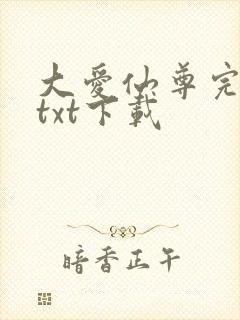 大愛仙尊完
txt下載
暗香正午